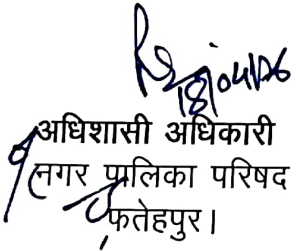 18/04/26
अधिशासी अधिकारी
नगर पालिका परिषद
फतेहपुर।